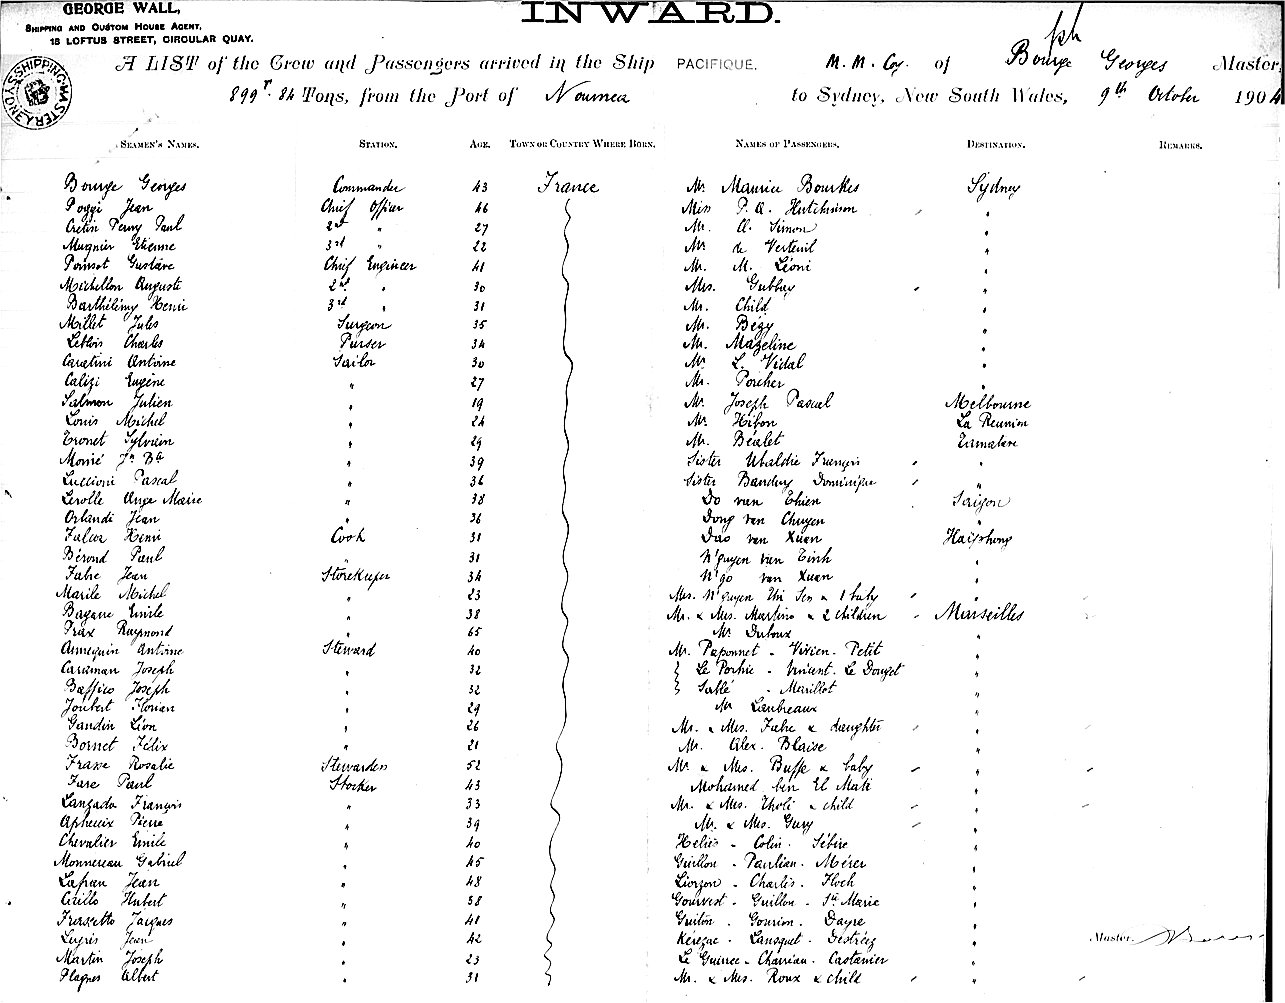 GEORGE WALL,
SHIPPING AND CUSTOM HOUSE AGENT,
18 LOFTUS STREET, CIRCULAR QUAY.
INWARD.
SHIPPING MASTER SYDNEY
A LIST of the Crew and Passengers arrived in the Ship PACIFIQUE. M. M. Coy. of Bourge Georges Master,
899 T. 84 Tons, from the Port of Noumea to Sydney, New South Wales, 9th October 1904
SEAMEN'S NAMES. STATION. AGE. TOWN OR COUNTRY WHERE BORN. NAMES OF PASSENGERS. DESTINATION. REMARKS.
Bourge Georges Commander 43 France Mr. Maurice Bourkes Sydney
Poggi Jean Chief Officer 46 Miss P. A. Hutchinson "
Cretin Perny Paul 2nd " 27 Mr. A. Simon "
Mugnier Etienne 3rd " 22 Mr de Verteuil "
Poinsot Gustave Chief Engineer 41 Mr. M. Léoni "
Michellon Auguste 2nd " 30 Mrs. Gubbay "
Barthélémy Henri 3rd " 31 Mr. Child "
Millet Jules Surgeon 35 Mr. Bégy "
Leblois Charles Purser 34 Mr. Mazeline "
Caratini Antoine Sailor 30 Mr L. Vidal "
Calizi Eugène " 27 Mr. Porcher "
Salmon Julien " 19 Mr. Joseph Pascal Melbourne
Louis Michel " 24 Mr. Hibon La Reunion
Tronet Sylvain " 29 Mr. Béalet
Morié Jn Bte " 39 Sister Ubaldie François "
Luccioni Pascal " 36 Sister Dominique "
Lerolle Ange Marie " 38 Do van Thien Saigon
Orlandi Jean " 36 Dong van Chuyen "
Falcoz Henri Cook 31 Dao van Xuan Haiphong
Bérond Paul " 31 N'guyen van Tinh "
Fabre Jean Storekeeper 34 N'go van Xuan "
Marile Michel " 23 Mrs. N'guyen Thi Sen & 1 baby "
Bagane Emile " 38 Mr. & Mrs. Martino & 2 children Marseilles
Prax Raymond " 65 Mr Duboux "
Annequin Antoine Steward 40 Mr. Paponnet - Vivien - Petit "
Carisman Joseph " 32 } Le Porhie - Vincent - Le Douget "
Baffico Joseph " 32 } Sablé - Marillot "
Joubert Florian " 29 Mr Laubreaux "
Gaudin Léon " 26 Mr. & Mrs. Fabre & daughter "
Bornet Félix " 21 Mr. Alex. Blaise "
Frasse Rosalie Stewardess 52 Mr & Mrs. Buffe & baby "
Fare Paul Stocker 43 Mohamed ben El Mati "
Lanzada François " 33 Mr. & Mrs. Tholi & child "
Apheceix Pierre " 39 Mr. & Mrs. Gury "
Chevalier Emile " 40 Heliès - Colin - Sébire "
Monnereau Gabriel " 45 Guillon - Paulian - Mérer "
Lafran Jean " 48 Liorzon - Charlès - Floch "
Cirillo Hubert " 38 Gourvest - Guillon - Ste Marie "
Frassetto Jacques " 41 Guiton - Gourion - Dayre "
Leyris Jean " 42 Kérézac - Lansquet - Destriez "
Master
Martin Joseph " 23 Le Guirrec - Charriau - Castanier "
Plagnes Albert " 31 Mr. & Mrs. Roux & child "